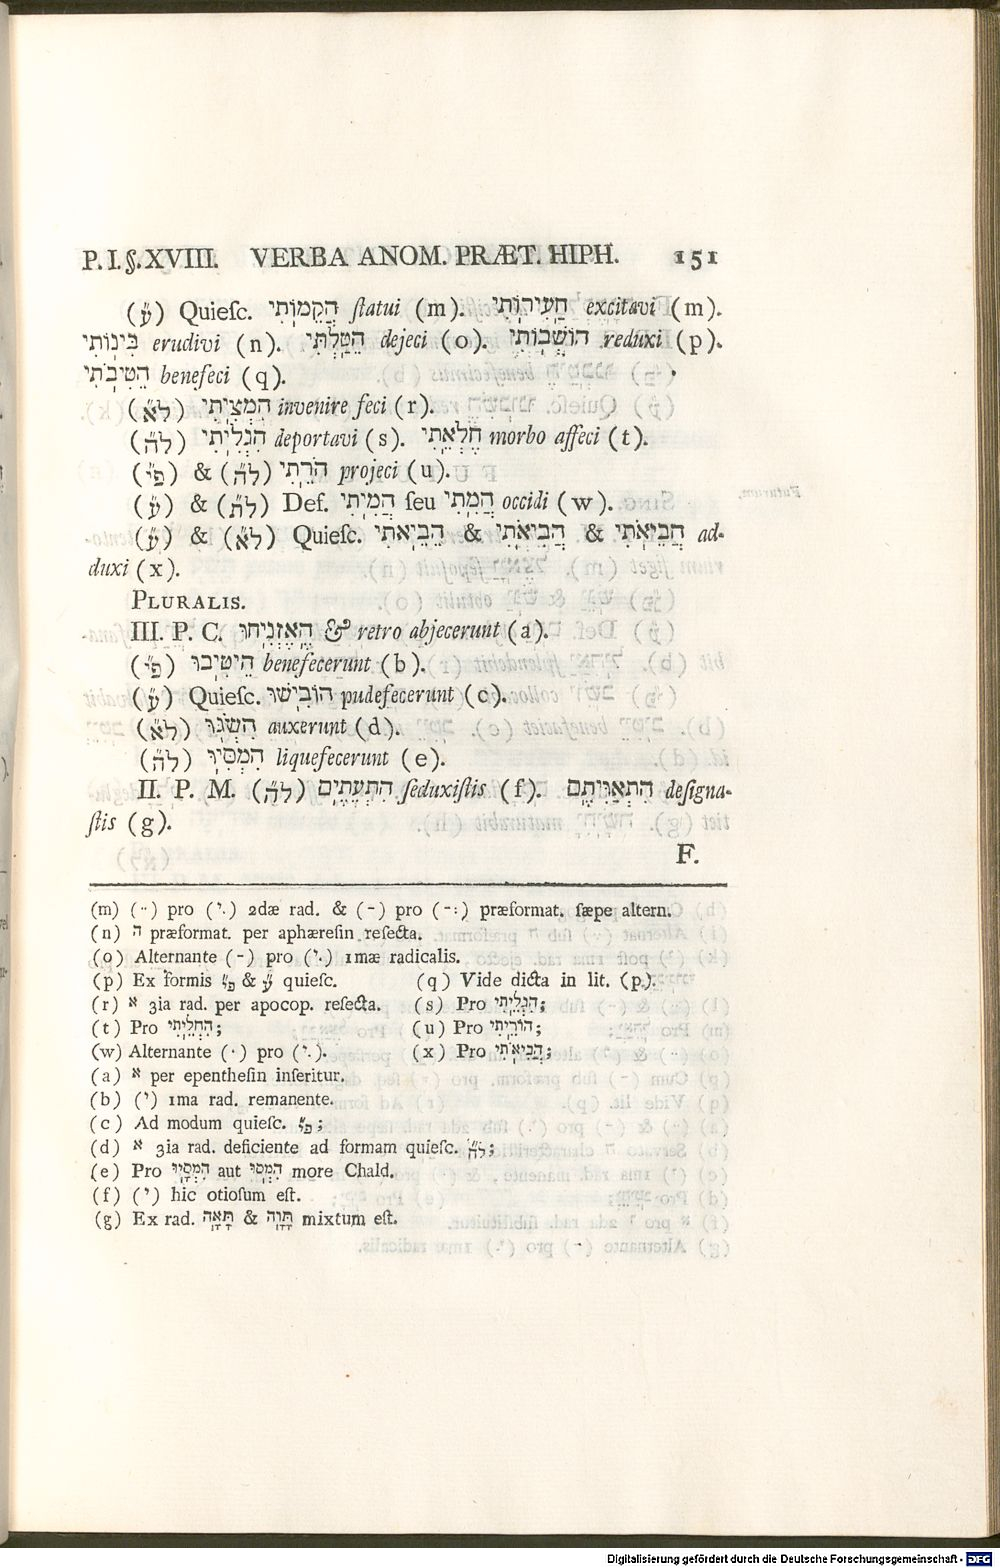 P. I. §. XVIII. VERBA ANOM. PRÆT. HIPH. 151
(עֹ״) Quieſc. הֲקֵמוֹתִי ſtatui (m). הַעִירוֹתִי excitavi (m).
בִּינוֹתִי erudivi (n). הֵטַלְתִּי dejeci (o). הוֹשְׁבוֹתִי reduxi (p).
הֵטִיבֹתִי benefeci (q).
(לא״) הִמְצִיתִי invenire feci (r).
(לה״) הִגְלֵיתִי deportavi (s). חֶלְאֵתִי morbo affeci (t).
(פי״) & (לה״) הֹרֵתִי projeci (u).
(עֹ״) & (לת״) Def. הֲמִתִּי ſeu הֲמִיתִי occidi (w).
(עֹ״) & (לא״) Quieſc. הֵבֵיאתִי & הֲבִיאֹתִי & הֲבֵיאֹתִי ad-
duxi (x).
PLURALIS.
III. P. C. הֶאֶזְנִיחוּ & retro abjecerunt (a).
(פי״) הֵיטִיבוּ benefecerunt (b).
(עֹ״) Quieſc. הוֹבִישׁוּ pudefecerunt (c).
(לא״) הִשְׂגּוּ auxerunt (d).
(לה״) הִמְסִיו liquefecerunt (e).
II. P. M. (לה״) הִתְעֵתֶים ſeduxiſtis (f). הִתְאַוִּיתֶם deſigna-
ſtis (g).
F.
(m) (··) pro (י.) 2dæ rad. & (-) pro (-:) præformat. ſæpe altern.
(n) ה præformat. per aphæreſin reſecta.
(o) Alternante (-) pro (י.) 1mæ radicalis.
(p) Ex formis פי״ & עֹ״ quieſc. (q) Vide dicta in lit. (p).
(r) א 3ia rad. per apocop. reſecta. (s) Pro הִגְלֵיתִי;
(t) Pro הֶחֱלֵיתִי; (u) Pro הוֹרֵיתִי;
(w) Alternante (·) pro (י.). (x) Pro הֲבִיאֹתִי;
(a) א per epentheſin inſeritur.
(b) (י) 1ma rad. remanente.
(c) Ad modum quieſc. פי״;
(d) א 3ia rad. deficiente ad formam quieſc. לה״;
(e) Pro הִמְסָיוּ aut הִמְסוּ more Chald.
(f) (י) hic otioſum eſt.
(g) Ex rad. תָּאָה & תָּוָה mixtum eſt.
Digitalisierung gefördert durch die Deutsche Forschungsgemeinschaft - DFG